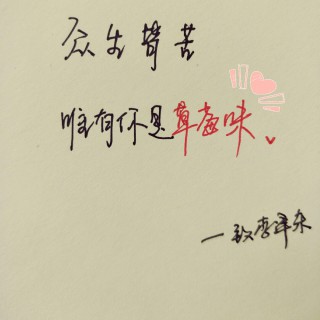 众生皆苦
唯有你是草莓味
一致李泽东